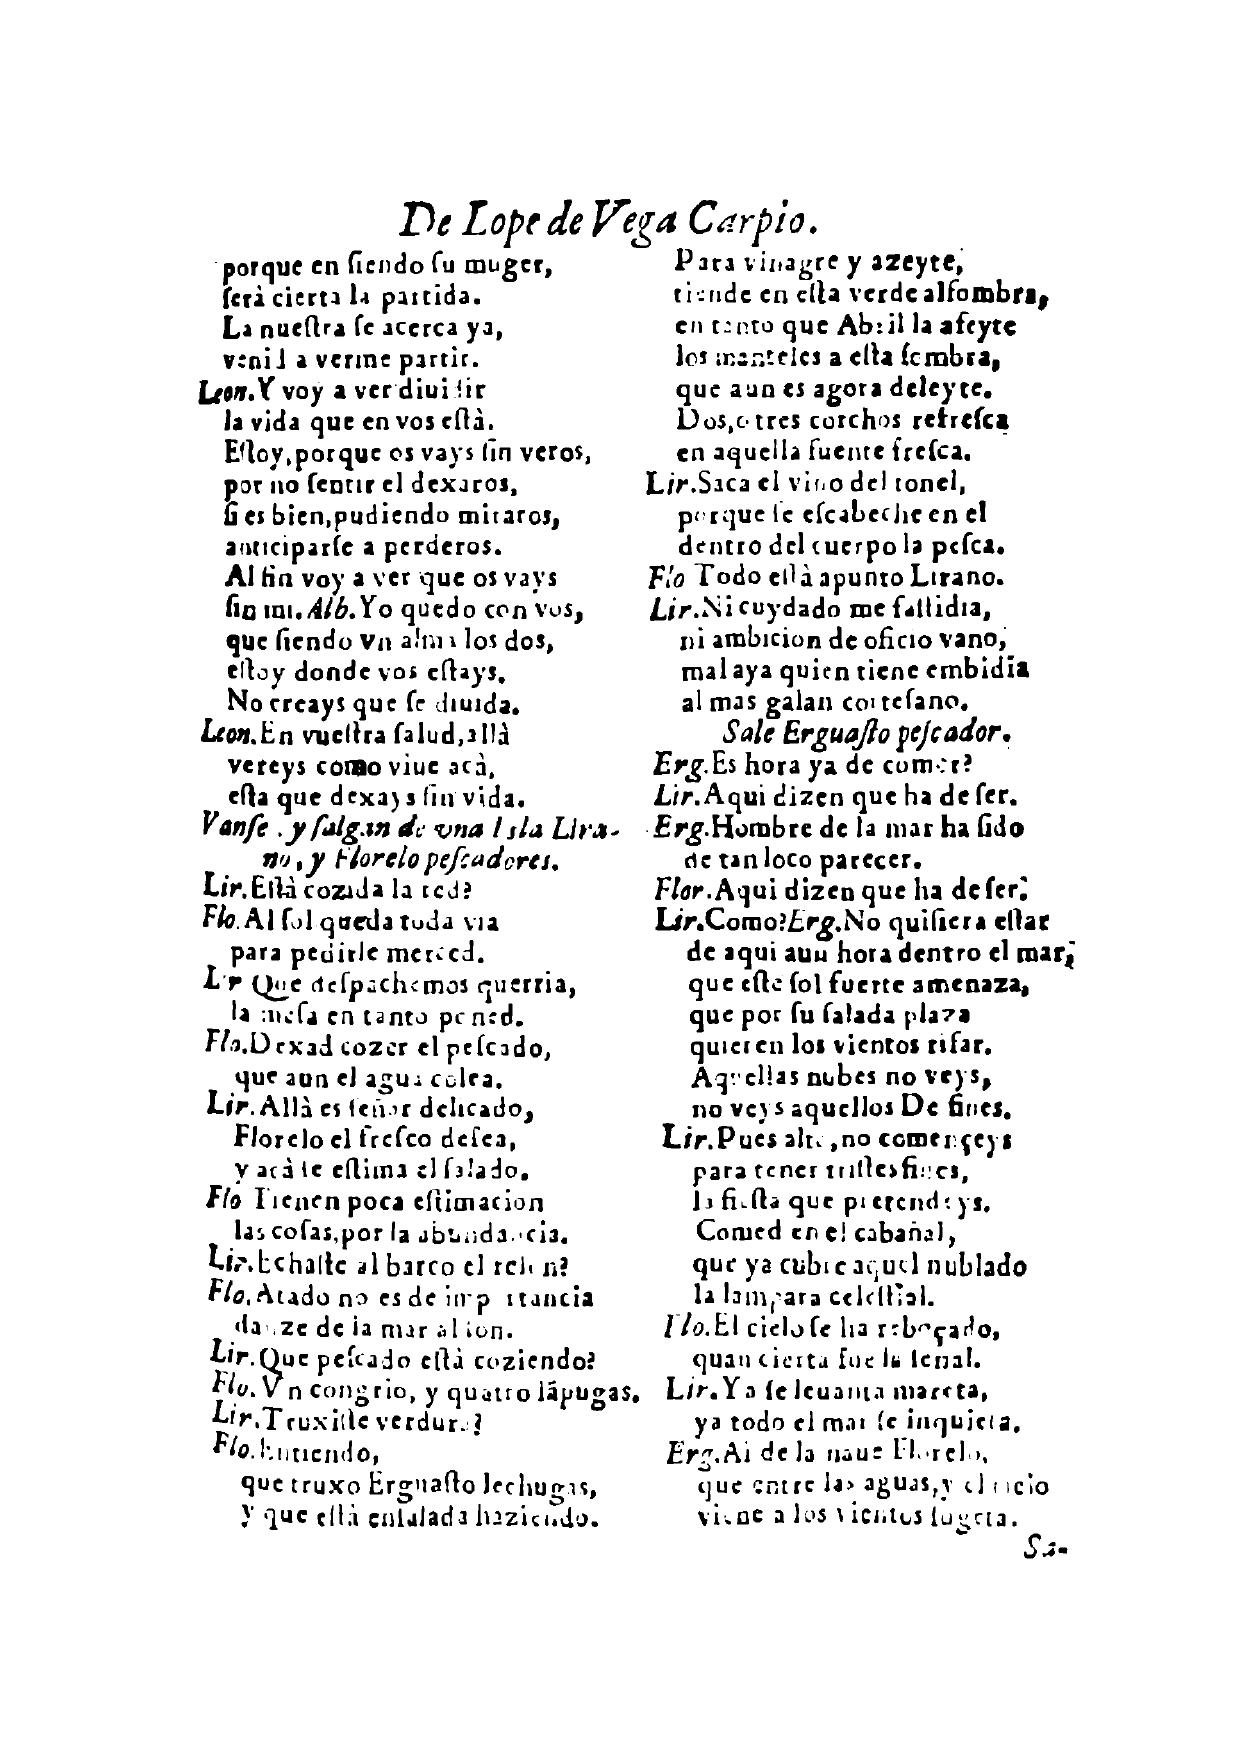 De Lope de Vega Carpio.
porque en ſiendo ſu muger,
ſerà cierta la partida.
La nueſtra ſe acerca ya,
venid a verme partir.
Leon.Y voy a ver diuidir
la vida que en vos eſtà.
Eſtoy,porque os vays ſin veros,
por no ſentir el dexaros,
ſi es bien,pudiendo miraros,
anticiparſe a perderos.
Al fin voy a ver que os vays
ſin mi.Alb.Yo quedo con vos,
que ſiendo vn alma los dos,
eſtoy donde vos eſtays.
No creays que ſe diuida.
Leon.En vueſtra ſalud,allà
vereys como viue acà,
eſta que dexays ſin vida.
Vanſe, y ſalgan de vna Isla Lira-
no, y Florelo peſcadores.
Lir.Eſtà cozida la red?
Flo.Al ſol queda toda via
para pedirle merced.
Lir Que deſpachemos querria,
la meſa en tanto poned.
Flo.Dexad cozer el peſcado,
que aun el agua colea.
Lir.Allà es ſeñor delicado,
Florelo el freſco deſea,
y acà ſe eſtima el ſalado.
Flo Tienen poca eſtimacion
las coſas,por la abundancia.
Lir.Echaſte al barco el rejon?
Flo.Atado no es de importancia
dançe de la mar al ſon.
Lir.Que peſcado eſtà coziendo?
Flo.Vn congrio, y quatro lãpugas.
Lir.Truxiſte verdura?
Flo.Entiendo,
que truxo Erguaſto lechugas,
y que eſtà enſalada haziendo.
Para vinagre y azeyte,
tiende en eſta verde alfombra,
en tanto que Abril la afeyte
los manteles a eſta ſombra,
que aun es agora deleyte.
Dos,o tres corchos refreſca
en aquella fuente freſca.
Lir.Saca el vino del tonel,
porque ſe eſcabeche en el
dentro del cuerpo la peſca.
Flo Todo eſtà apunto Lirano.
Lir.Ni cuydado me faſtidia,
ni ambicion de oficio vano,
mal aya quien tiene embidia
al mas galan corteſano.
Sale Erguaſto peſcador.
Erg.Es hora ya de comer?
Lir.Aqui dizen que ha de ſer.
Erg.Hombre de la mar ha ſido
de tan loco parecer.
Flor.Aqui dizen que ha de ſer.
Lir.Como?Erg.No quiſiera eſtar
de aqui aun hora dentro el mar,
que eſte ſol fuerte amenaza,
que por ſu ſalada plaza
quieren los vientos rifar.
Aquellas nubes no veys,
no veys aquellos Defines.
Lir.Pues alto,no començeys
para tener triſtes fines,
la fieſta que pretendeys.
Comed en el cabañal,
que ya cubre aquel nublado
la lampara celeſtial.
Flo.El cielo ſe ha reboçado,
quan cierta fue la ſeñal.
Lir.Ya ſe leuanta mareta,
ya todo el mar ſe inquieta.
Erg.Ai de la naue Florelo,
que entre las aguas,y el cielo
viene a los vientos ſugeta.
Sa-